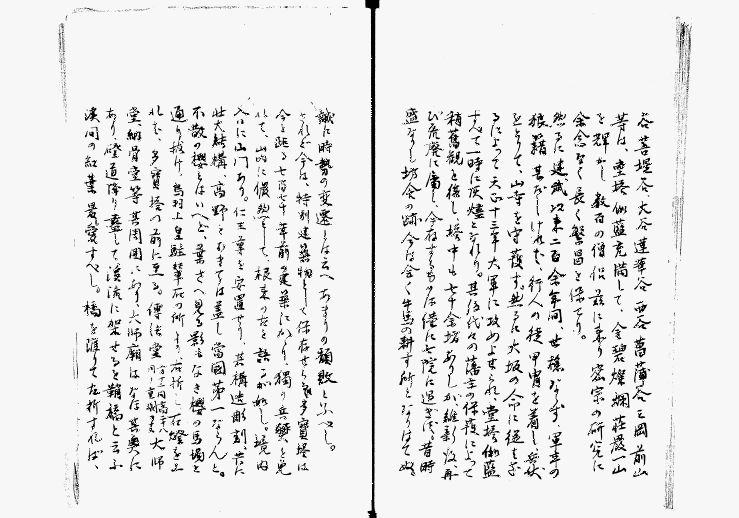 谷菩提谷大谷蓮華谷西谷菖蒲谷三岡前山
等は、堂塔伽藍充満して、金碧燦爛荘厳一山
を輝かし、数百の僧侶茲に来り密宗の研究に
余念なく長く繁昌を保てり。
然るに建武以来二百余年間、世穏ならず、軍卒の
狼籍甚だしければ、行人の徒甲冑を着し兵仗
をとりて、山寺を守護す。然るに大坂の命に従はざ
るによつて天正十三年大軍に攻めよせられ、堂塔伽藍
すべて一時に灰燼となれり。其後代々の藩主の保護によつて
稍旧観を復し、塔中も七十余坊ありしが維新後、再
び荒廃に属し、今存するものは僅に七院に過ぎず。昔時
盛なりし坊舎の跡、今は全く牛馬の耕す所となりはてぬ。
誠に時勢の変遷とは云へあまりの頽敗と云ふべし。
されど今は、特別建築物として保存せらる多宝塔は
今を距る七百七十年前の建築にかゝり、独り兵燹を免
れて、山内に儼然として、根来の古を語るが如し。境内
入口に山門あり。仁王尊を安置せり、其構造彫刻共に
壮大結構、高野をおきては蓋し当国第一ならんと。
不散の櫻とはいへど、葉さへ見る影もなき櫻の馬場を
通り抜け、鳥羽上皇駐輦石の所より、右折し石燈を上
れば、多宝塔の前に至る。傳法堂 大師
堂、納骨堂等其周囲にあり、大師廟はなほ其奥に
あり、磴道降り盡して渓流に架せるを鞘橋と云ふ
渓間の紅葉最愛すべし。橋を渡りて左折すれば、